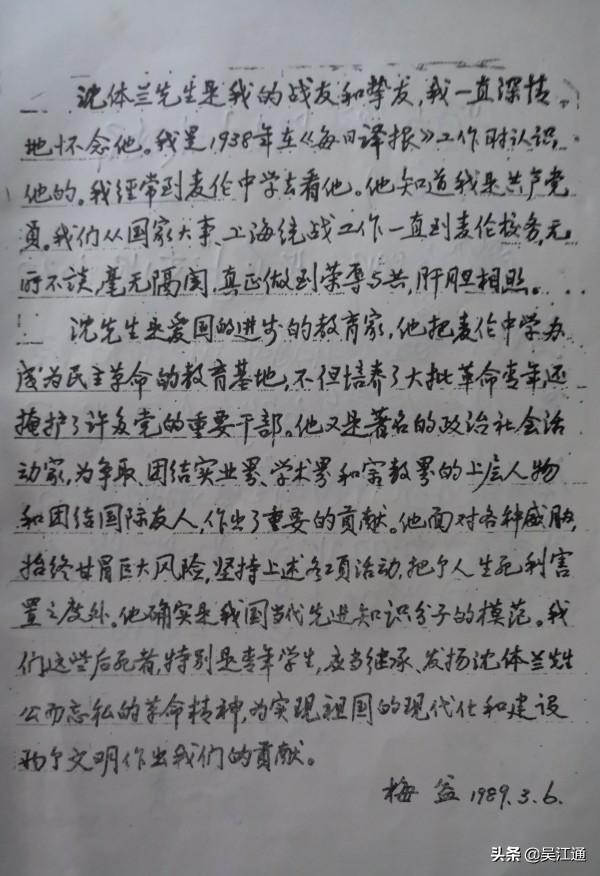 沈体兰先生是我的战友和挚友,我一直深情
地怀念他。我是1938年在《每日译报》工作时认识
他的。我经常到麦伦中学去看他。他知道我是共产党
员。我们从国家大事、上海统战工作一直到麦伦校务,无
所不谈,毫无隔阂,真正做到荣辱与共,肝胆相照。...
沈先生是爱国的进步的教育家,他把麦伦中学办
成为民主革命的教育基地,不但培养了大批革命青年,还
掩护了许多党的重要干部。他又是著名的政治社会活
动家,为争取、团结实业界、学术界和宗教界的上层人物
和团结国际友人,作出了重要的贡献。他面对各种威胁,
始终甘冒巨大风险,坚持上述各项活动,把个人生死利害
置之度外。他确实是我国当代先进知识分子的模范。我
们这些后死者,特别是青年学生,应当继承、发扬沈体兰先生
公而忘私的革命精神,为实现祖国的现代化和建设
两个文明作出我们的贡献。
梅益 1989.3.6.
头条@吴江通